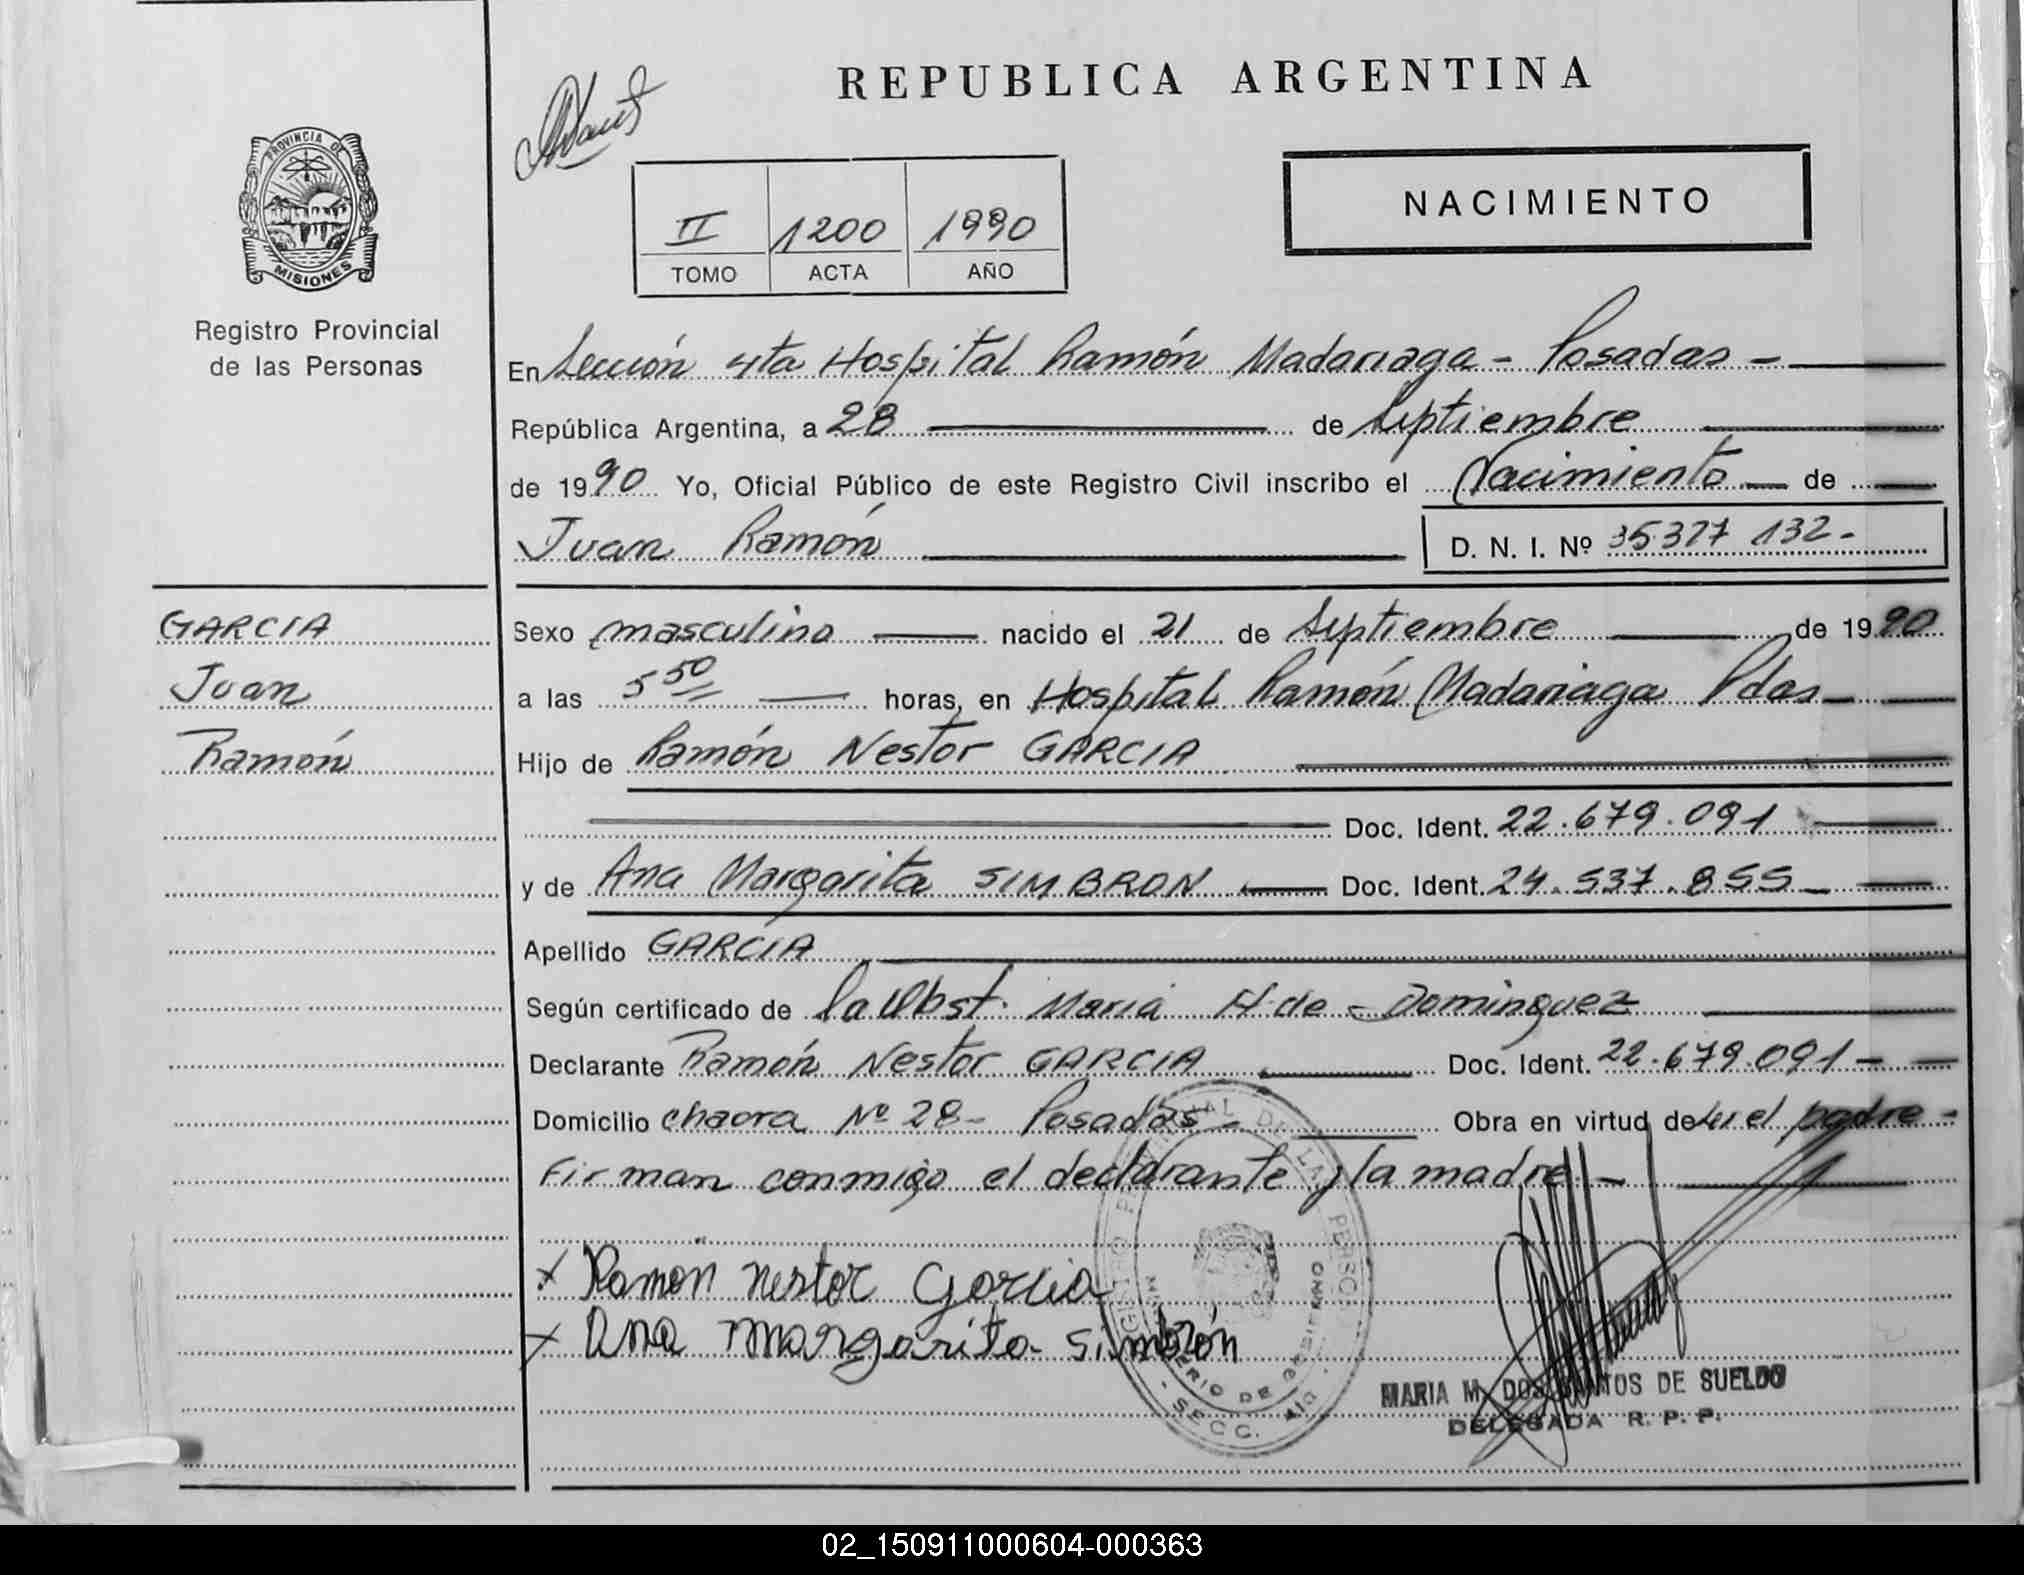 REPUBLICA ARGENTINA
NACIMIENTO
II 1200 1990
TOMO ACTA AÑO
PROVINCIA DE
MISIONES
Registro Provincial
de las Personas
En Sección 4ta Hospital Ramón Madariaga - Posadas -
República Argentina, a 28 de Septiembre
de 1990 Yo, Oficial Público de este Registro Civil inscribo el Nacimiento de
Juan Ramón D. N. I. Nº 35377 132-
GARCIA
Juan
Ramón
Sexo masculino nacido el 21 de Septiembre de 1990
a las 5 50 horas, en Hospital Ramón Madariaga Pdas
Hijo de Ramón Nestor GARCIA
Doc. Ident. 22.679.091
y de Ana Margarita SIMBRON Doc. Ident. 24.537.855
Apellido GARCIA
Según certificado de la Obst. Maria H de Dominguez
Declarante Ramón Nestor GARCIA Doc. Ident. 22.679.091-
Domicilio chacra Nº 28- Posadas- Obra en virtud de el padre-
Firman conmigo el declarante y la madre-
x Ramon nestor Garcia
x Ana Margarita Simbrón
MARIA M. DOS SANTOS DE SUELDO
DELEGADA R. P. P.
02_150911000604-000363